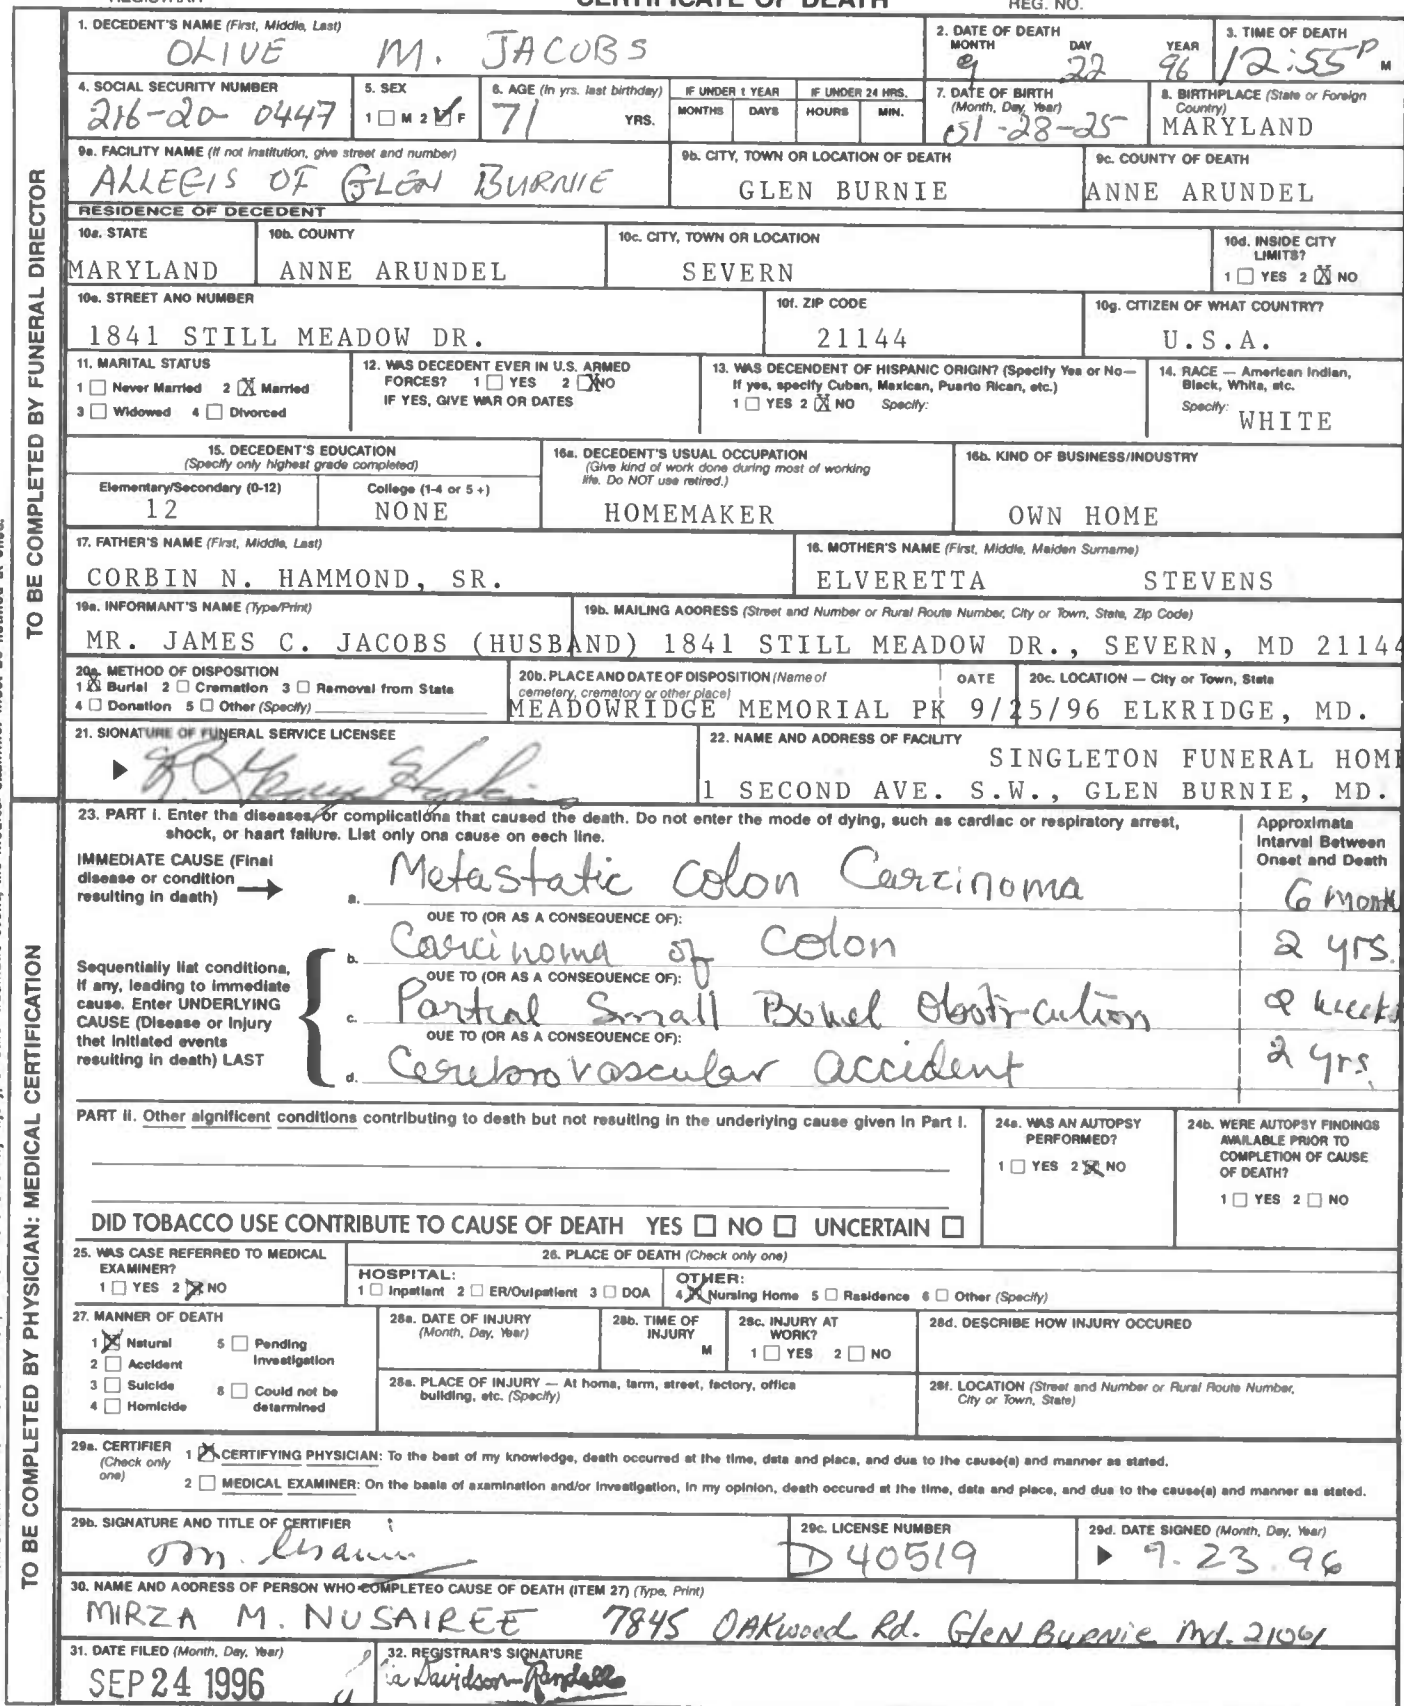 CERTIFICATE OF DEATH
REG. NO.
1. DECEDENT'S NAME (First, Middle, Last)
OLIVE M. JACOBS
2. DATE OF DEATH
MONTH DAY YEAR
9 22 96
3. TIME OF DEATH
12:55 P M
4. SOCIAL SECURITY NUMBER
216-20-0447
5. SEX
1 ☐ M 2 ☑ F
6. AGE (In yrs. last birthday)
71 YRS.
IF UNDER 1 YEAR
MONTHS DAYS
IF UNDER 24 HRS.
HOURS MIN.
7. DATE OF BIRTH
(Month, Day, Year)
01-28-25
8. BIRTHPLACE (State or Foreign
Country)
MARYLAND
9a. FACILITY NAME (If not institution, give street and number)
ALLEGIS OF GLEN BURNIE
9b. CITY, TOWN OR LOCATION OF DEATH
GLEN BURNIE
9c. COUNTY OF DEATH
ANNE ARUNDEL
RESIDENCE OF DECEDENT
10a. STATE
MARYLAND
10b. COUNTY
ANNE ARUNDEL
10c. CITY, TOWN OR LOCATION
SEVERN
10d. INSIDE CITY
LIMITS?
1 ☐ YES 2 ☒ NO
10e. STREET AND NUMBER
1841 STILL MEADOW DR.
10f. ZIP CODE
21144
10g. CITIZEN OF WHAT COUNTRY?
U.S.A.
11. MARITAL STATUS
1 ☐ Never Married 2 ☒ Married
3 ☐ Widowed 4 ☐ Divorced
12. WAS DECEDENT EVER IN U.S. ARMED
FORCES? 1 ☐ YES 2 ☒ NO
IF YES, GIVE WAR OR DATES
13. WAS DECENDENT OF HISPANIC ORIGIN? (Specify Yes or No—
If yes, specify Cuban, Mexican, Puerto Rican, etc.)
1 ☐ YES 2 ☒ NO Specify:
14. RACE — American Indian,
Black, White, etc.
Specify: WHITE
15. DECEDENT'S EDUCATION
(Specify only highest grade completed)
Elementary/Secondary (0-12)
12
College (1-4 or 5 +)
NONE
16a. DECEDENT'S USUAL OCCUPATION
(Give kind of work done during most of working
life. Do NOT use retired.)
HOMEMAKER
16b. KIND OF BUSINESS/INDUSTRY
OWN HOME
17. FATHER'S NAME (First, Middle, Last)
CORBIN N. HAMMOND, SR.
18. MOTHER'S NAME (First, Middle, Maiden Surname)
ELVERETTA STEVENS
19a. INFORMANT'S NAME (Type/Print)
MR. JAMES C. JACOBS (HUSBAND)
19b. MAILING ADDRESS (Street and Number or Rural Route Number, City or Town, State, Zip Code)
1841 STILL MEADOW DR., SEVERN, MD 21144
20a. METHOD OF DISPOSITION
1 ☒ Burial 2 ☐ Cremation 3 ☐ Removal from State
4 ☐ Donation 5 ☐ Other (Specify)
20b. PLACE AND DATE OF DISPOSITION (Name of
cemetery, crematory or other place)
DATE
MEADOWRIDGE MEMORIAL PK 9/25/96
20c. LOCATION — City or Town, State
ELKRIDGE, MD.
21. SIGNATURE OF FUNERAL SERVICE LICENSEE
22. NAME AND ADDRESS OF FACILITY
SINGLETON FUNERAL HOME
1 SECOND AVE. S.W., GLEN BURNIE, MD.
TO BE COMPLETED BY FUNERAL DIRECTOR
23. PART I. Enter the diseases, or complications that caused the death. Do not enter the mode of dying, such as cardiac or respiratory arrest,
shock, or heart failure. List only one cause on each line.
Approximate
Interval Between
Onset and Death
IMMEDIATE CAUSE (Final
disease or condition
resulting in death)
a. Metastatic Colon Carcinoma 6 Month
DUE TO (OR AS A CONSEQUENCE OF):
b. Carcinoma of Colon 2 yrs.
DUE TO (OR AS A CONSEQUENCE OF):
c. Partial Small Bowel Obstruction weeks
DUE TO (OR AS A CONSEQUENCE OF):
d. Cerebrovascular accident 2 yrs.
Sequentially list conditions,
if any, leading to immediate
cause. Enter UNDERLYING
CAUSE (Disease or injury
that initiated events
resulting in death) LAST
PART II. Other significent conditions contributing to death but not resulting in the underlying cause given in Part I.
24a. WAS AN AUTOPSY
PERFORMED?
1 ☐ YES 2 ☒ NO
24b. WERE AUTOPSY FINDINGS
AVAILABLE PRIOR TO
COMPLETION OF CAUSE
OF DEATH?
1 ☐ YES 2 ☐ NO
DID TOBACCO USE CONTRIBUTE TO CAUSE OF DEATH YES ☐ NO ☐ UNCERTAIN ☐
25. WAS CASE REFERRED TO MEDICAL
EXAMINER?
1 ☐ YES 2 ☒ NO
26. PLACE OF DEATH (Check only one)
HOSPITAL:
1 ☐ Inpatient 2 ☐ ER/Outpatient 3 ☐ DOA
OTHER:
4 ☒ Nursing Home 5 ☐ Residence 6 ☐ Other (Specify)
27. MANNER OF DEATH
1 ☒ Natural 5 ☐ Pending
Investigation
2 ☐ Accident
3 ☐ Suicide 6 ☐ Could not be
determined
4 ☐ Homicide
28a. DATE OF INJURY
(Month, Day, Year)
28b. TIME OF
INJURY
M
28c. INJURY AT
WORK?
1 ☐ YES 2 ☐ NO
28d. DESCRIBE HOW INJURY OCCURED
28e. PLACE OF INJURY — At home, farm, street, factory, office
building, etc. (Specify)
28f. LOCATION (Street and Number or Rural Route Number,
City or Town, State)
29a. CERTIFIER
(Check only
one)
1 ☒ CERTIFYING PHYSICIAN: To the best of my knowledge, death occurred at the time, date and place, and due to the cause(s) and manner as stated.
2 ☐ MEDICAL EXAMINER: On the basis of examination and/or investigation, in my opinion, death occured at the time, date and place, and due to the cause(s) and manner as stated.
29b. SIGNATURE AND TITLE OF CERTIFIER
29c. LICENSE NUMBER
D40519
29d. DATE SIGNED (Month, Day, Year)
9.23.96
30. NAME AND ADDRESS OF PERSON WHO COMPLETED CAUSE OF DEATH (ITEM 27) (Type, Print)
MIRZA M. NUSAIREE 7845 OAKwood Rd. Glen Burnie Md. 21061
31. DATE FILED (Month, Day, Year)
SEP 24 1996
32. REGISTRAR'S SIGNATURE
Davidson-Randall
TO BE COMPLETED BY PHYSICIAN: MEDICAL CERTIFICATION